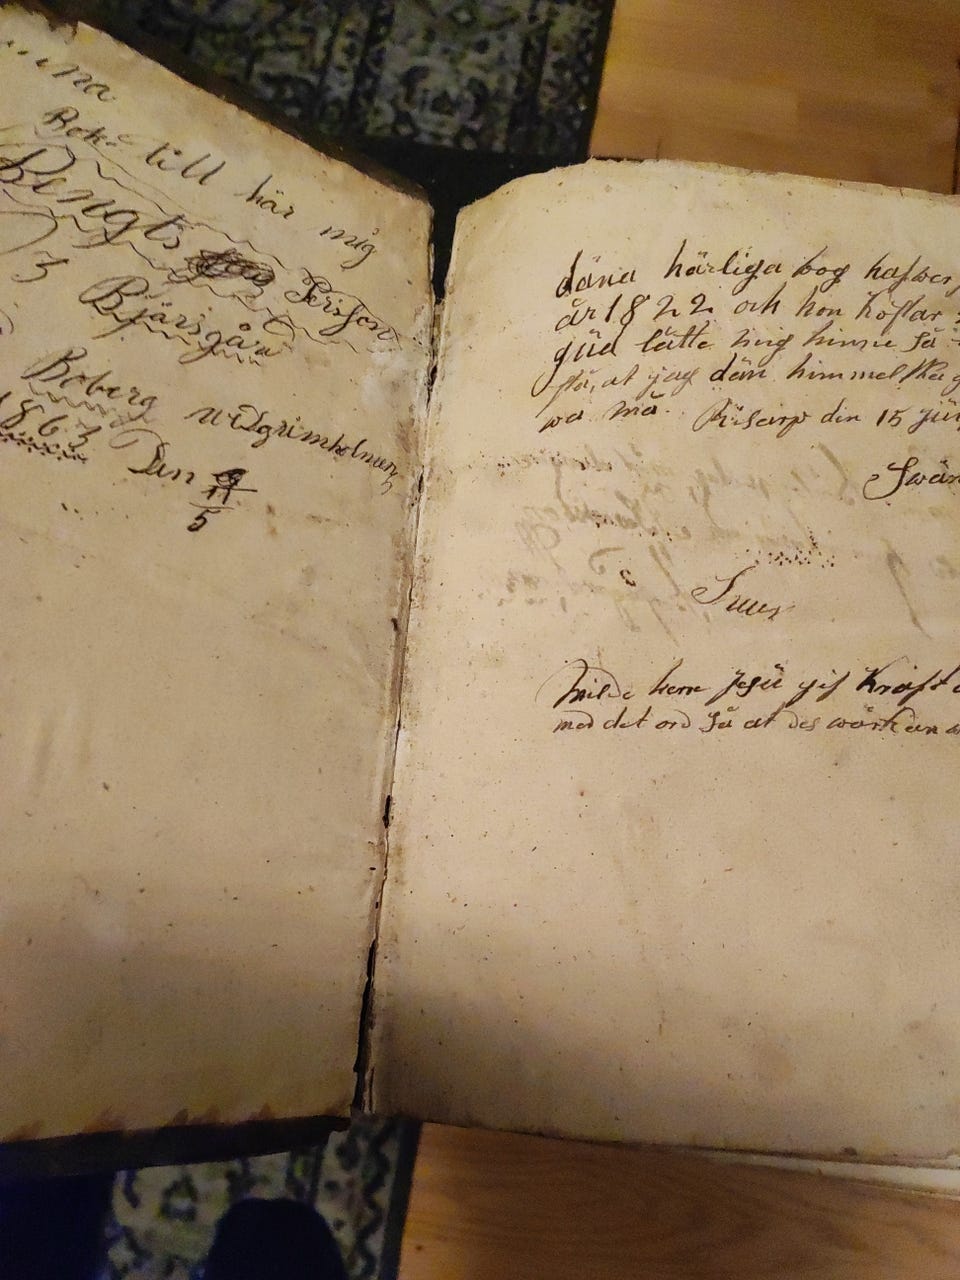 Bok till här mig
Bengts Persson
3 Bjärsgård
Boberg widgrimholmen
1863 Den 11
5
däna härliga bog hafwer
år 1822 och hon kostar
gud lätte mig hinna så
stå, at jag dän himmelska
wa må. Risarp din 15
Swän
Swen
Milde herre Jesu gif Kraft
med det ord så at des wärkan